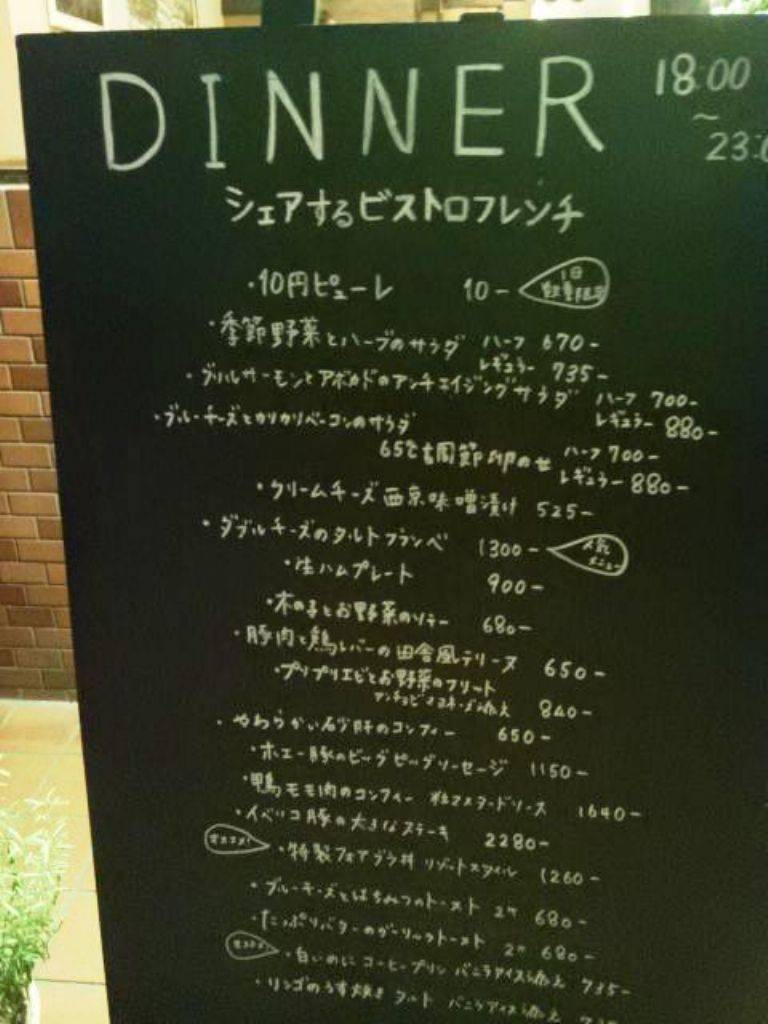 DINNER
18:00
~
23:
シェアするビストロフレンチ
・10円ピューレ 10- 1日数量限定
・季節野菜とハーブのサラダ ハーフ 670-
レギュラー 735-
・グリルサーモンとアボカドのアンチエイジングサラダ ハーフ 700-
レギュラー 880-
・ブルーチーズとカリカリベーコンのサラダ
65℃調節卵のせ ハーフ 700-
レギュラー 880-
・クリームチーズ西京味噌漬け 525-
・ダブルチーズのタルトフランベ 1300- 人気メニュー
・生ハムプレート 900-
・木の子とお野菜のソテー 680-
・豚肉と鶏レバーの田舎風テリーヌ 650-
・プリプリエビとお野菜のフリート
アンチョビマヨネーズ添え 840-
・やわらかい砂肝のコンフィー 650-
・ホエー豚のビッグピッグソーセージ 1150-
・鴨モモ肉のコンフィー 粒マスタードソース 1640-
・イベリコ豚の大きなステーキ 2280-
オススメ! ・特製フォアグラ丼 リゾットスタイル 1260-
・ブルーチーズとはちみつのトースト 2ケ 680-
・たっぷりバターのガーリックトースト 2ケ 680-
オススメ! ・白いのに コーヒープリン バニラアイス添え 735-
・リンゴのうす焼き タルト バニラアイス添え